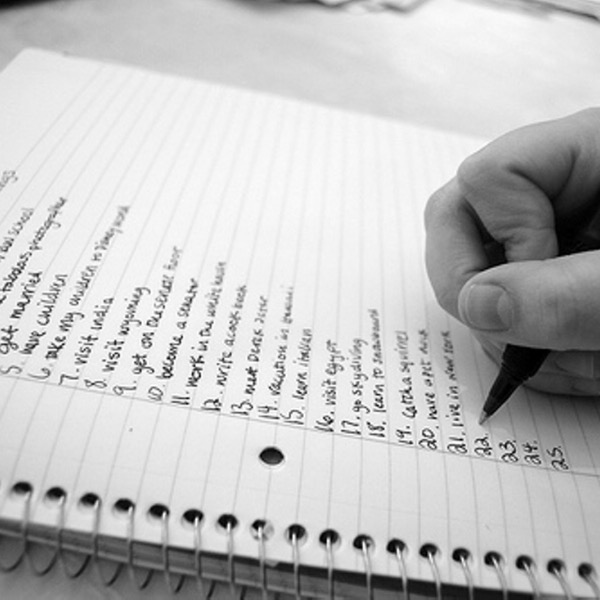 school
fabulous photographer
5. get married
6. have children
take my children to disney world
7. visit india
8. visit wyoming
9. get on the senate floor
10. become a senator
11. work in the white house
12. write a cook book
13. meet Derek Jeter
14. vacation in
15. learn italian
16. visit egypt
17. go skydiving
18. learn to snowboard
19. catch a squirrel
20. have a pet duck
21. live in new york
22.
23.
24.
25.